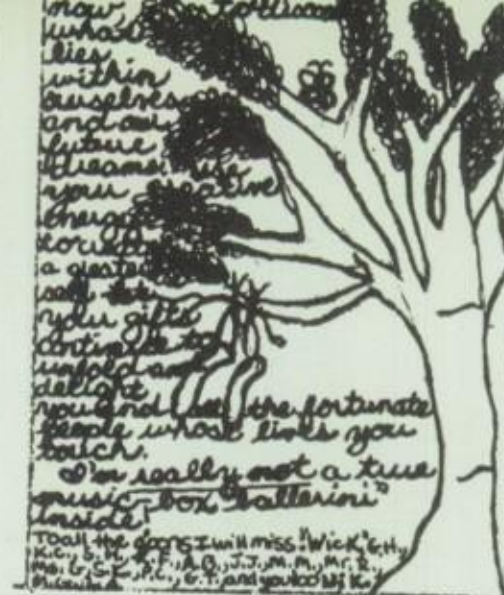 now
what
lies
within
ourselves
and our
future
dreams. use
your creative
energy
to
a
self
your gifts
continue to
unfold and
delight
you and all the fortunate
people whose lives you
touch.
I'm really not a true
music-box "ballerini"
inside!
To all the goons I will miss: "Wick," G.H.,
K.C., S.M., A.B., J.J., M.M., Mr. R.,
Ms. G., S.K., P.C., G.T., and you too